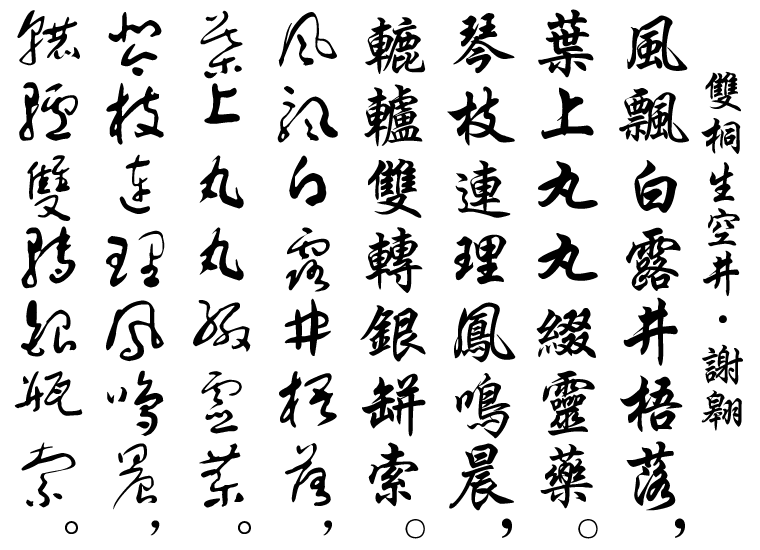 雙桐生空井·謝翱
風飄白露井梧落，
葉上丸丸綴靈藥。
琴枝連理鳳鳴晨，
轆轤雙轉銀缾索。
風飄白露井梧落，
葉上丸丸綴靈藥。
琴枝連理鳳鳴晨，
轆轤雙轉銀瓶索。